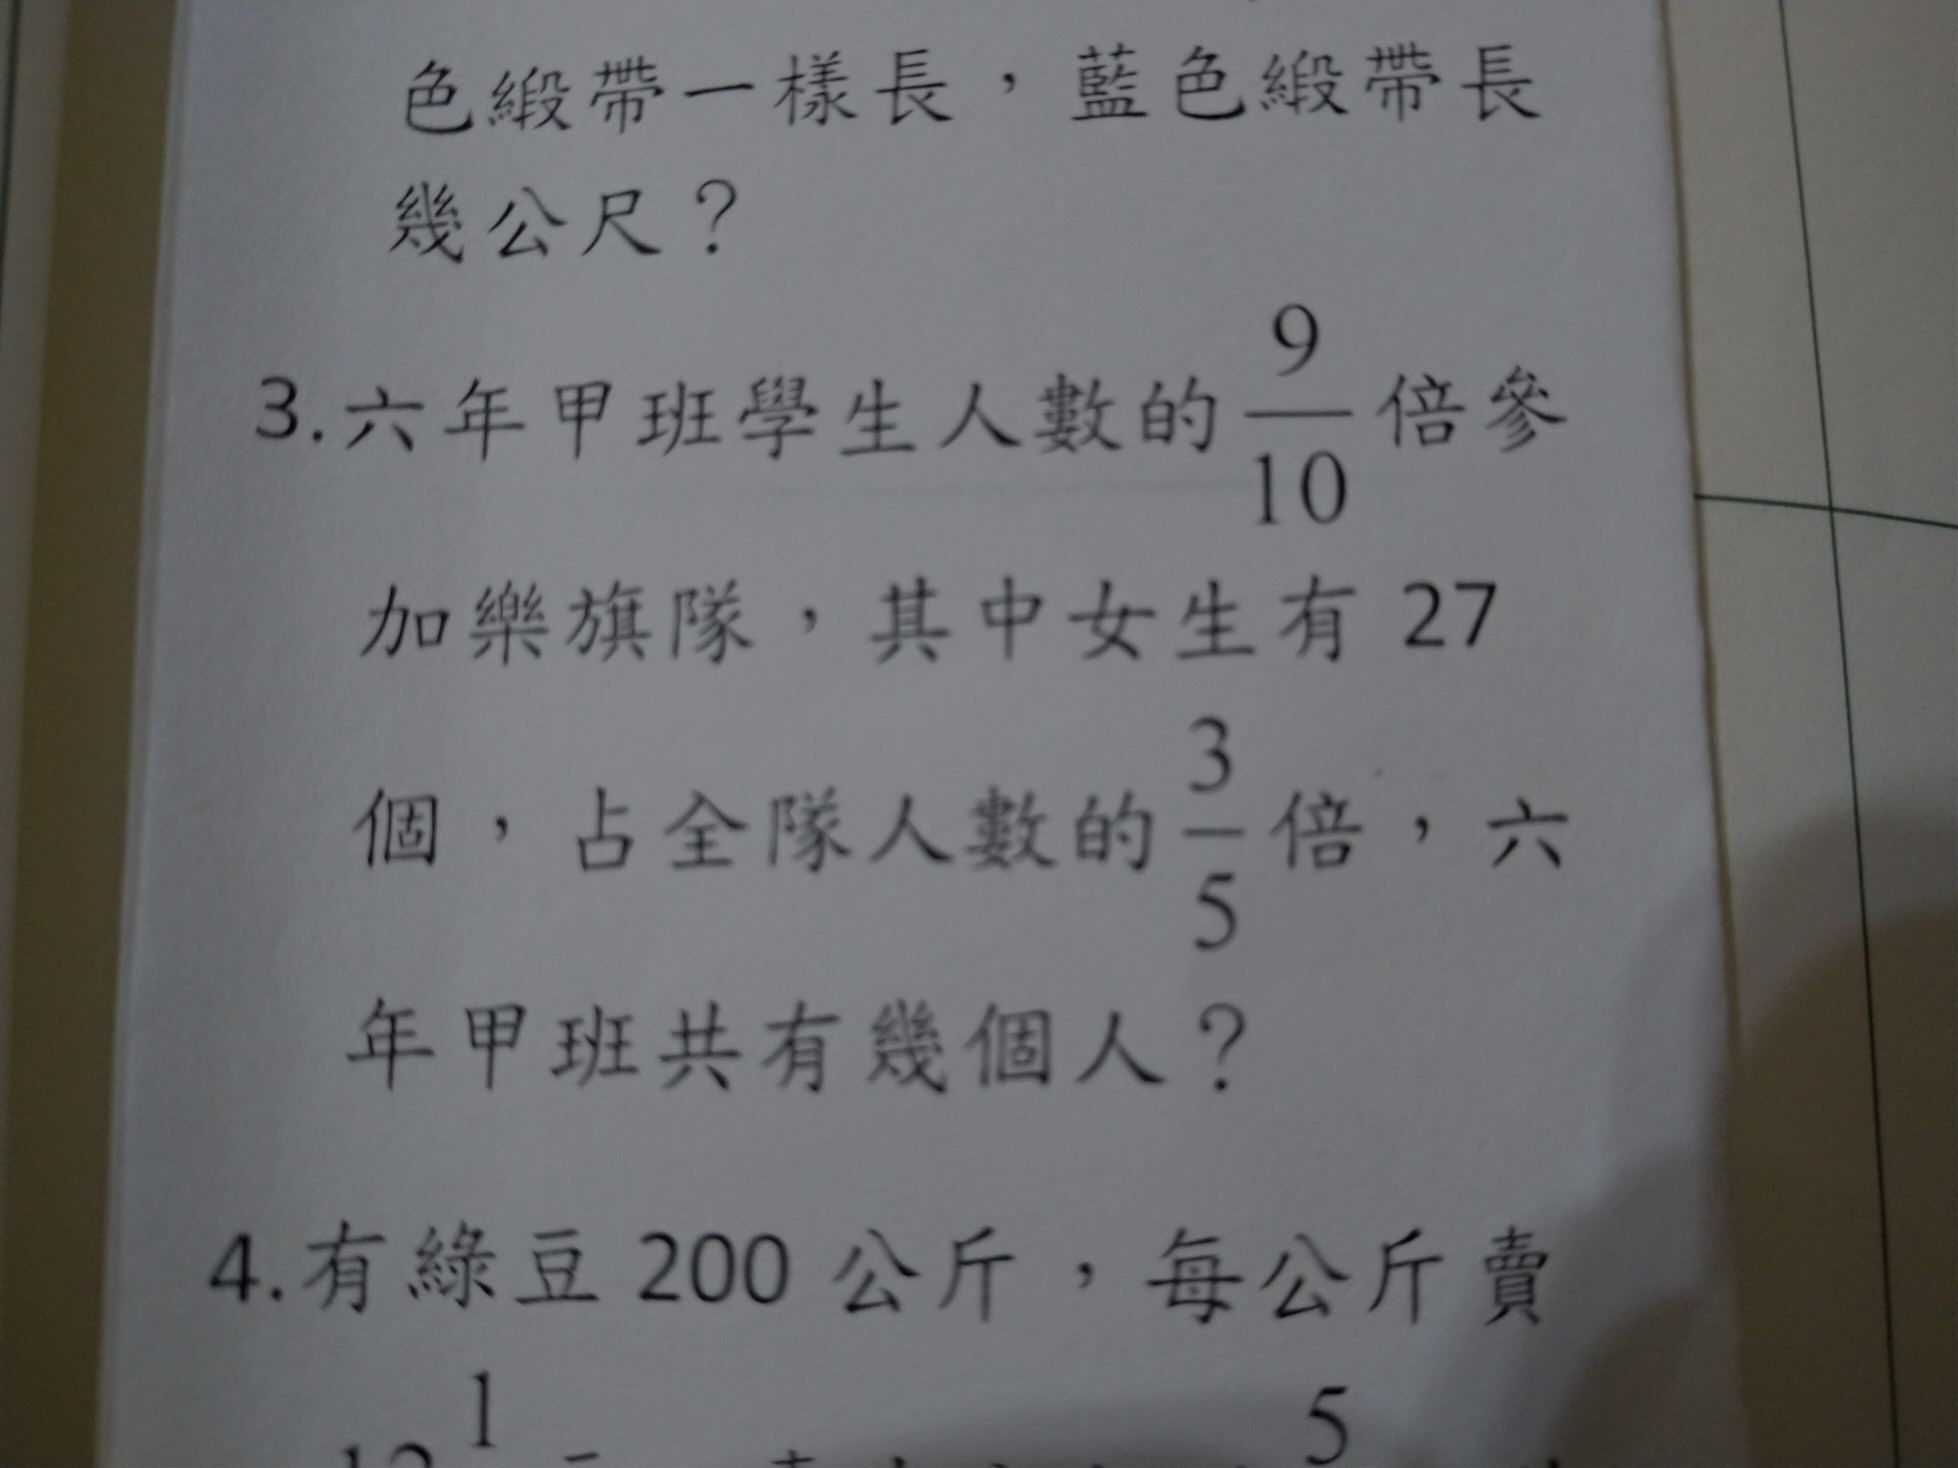 色緞帶一樣長，藍色緞帶長
幾公尺？
3.六年甲班學生人數的 9/10 倍參
加樂旗隊，其中女生有 27
個，占全隊人數的 3/5 倍，六
年甲班共有幾個人？
4.有綠豆 200 公斤，每公斤賣